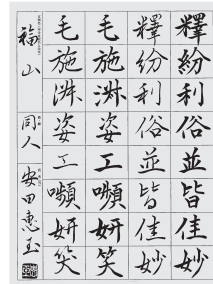 釋紛利俗並皆佳妙
釋紛利俗並皆佳妙
毛施淑姿工嚬妍笑
毛施淑姿工嚬妍笑
福山 同人 安田惠玉